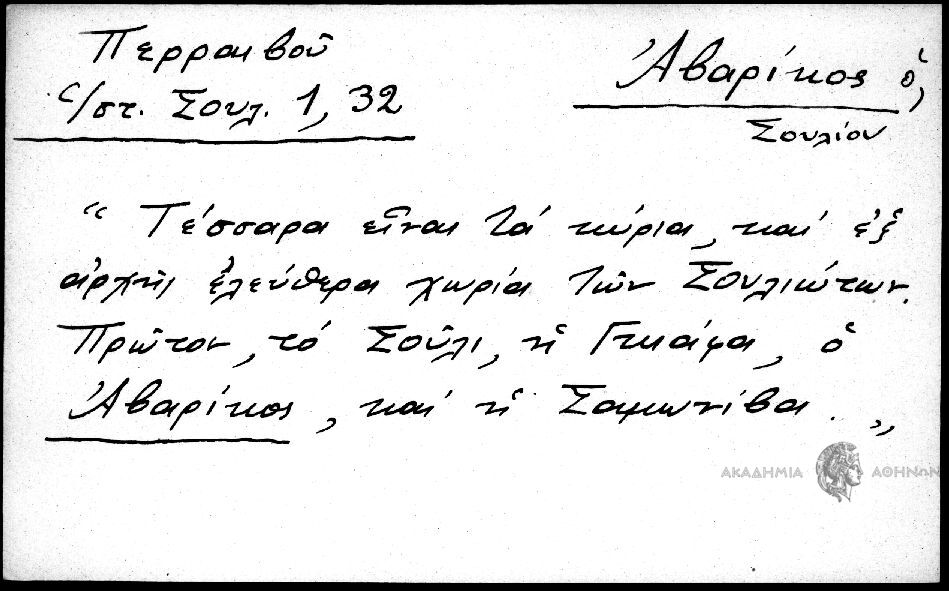 Περραιβοῦ
Ἱστ. Σουλ. 1, 32
Ἀβαρίκος ὁ,
Σουλίου
“ Τέσσαρα εἶναι τά κύρια, καί ἐξ
ἀρχῆς ἐλεύθερα χωρία τῶν Σουλιώτων.
Πρῶτον, τό Σοῦλι, ἡ Γκιάφα, ὁ
Ἀβαρίκος, καί ἡ Σαμωνίβα. „
ΑΚΑΔΗΜΙΑ ΑΘΗΝΩΝ